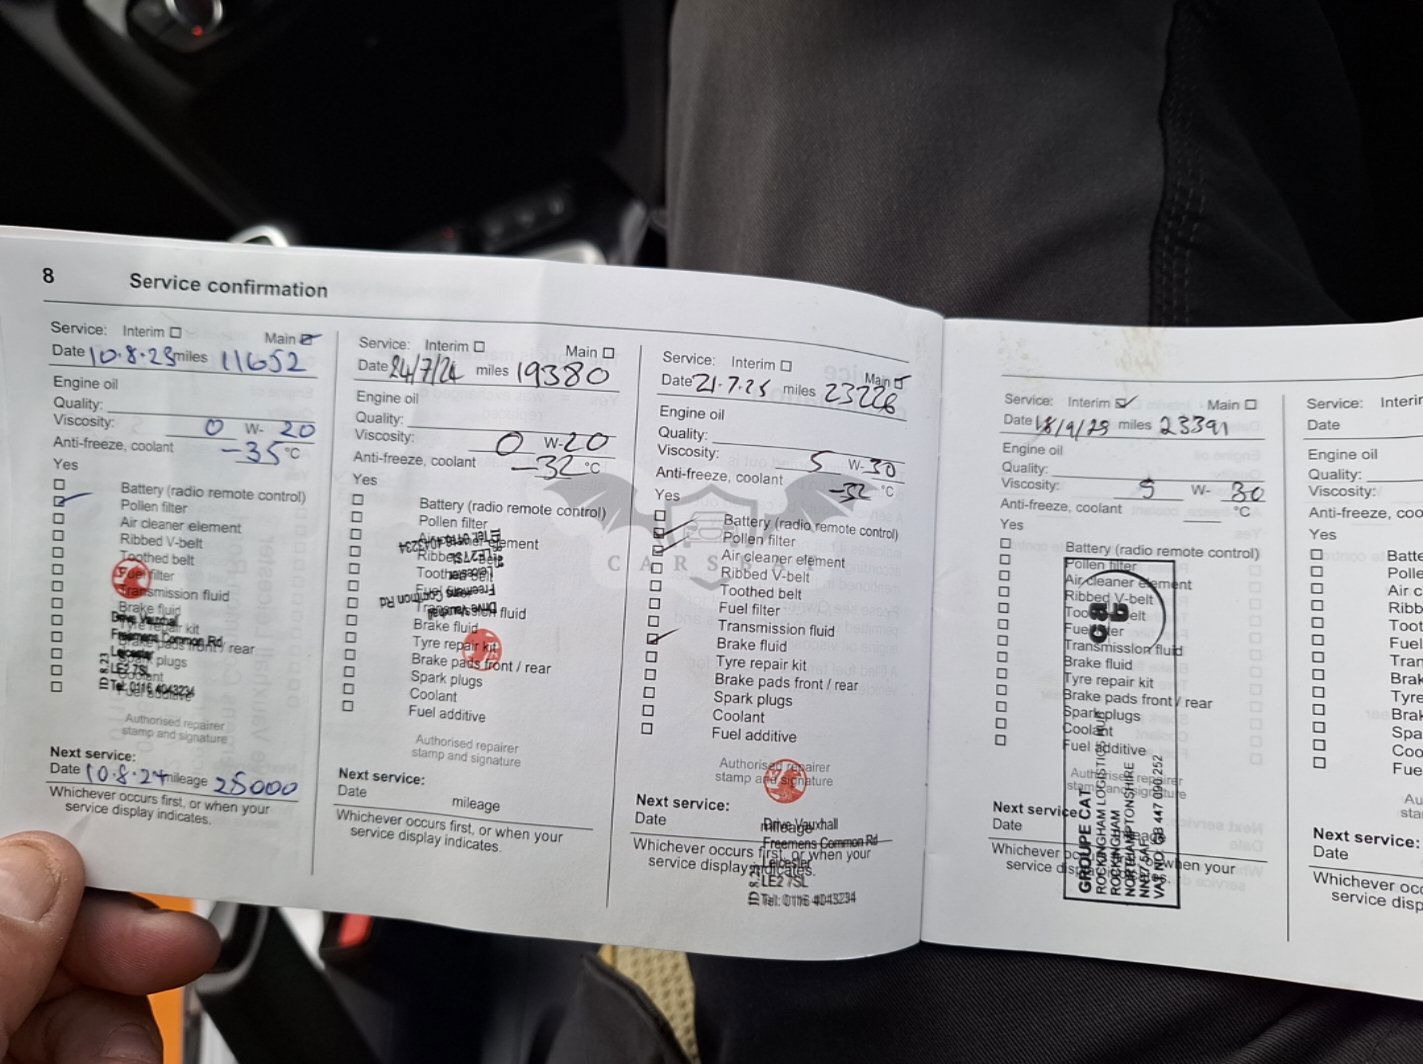 8 Service confirmation
Service: Interim Main
Date 10.8.23 miles 11652
Engine oil
Quality:
Viscosity: 0 W- 20
Anti-freeze, coolant -35 °C
Yes
Battery (radio remote control)
Pollen filter
Air cleaner element
Ribbed V-belt
Toothed belt
Fuel filter
Transmission fluid
Brake fluid
Tyre repair kit
Brake pads front / rear
Spark plugs
Coolant
Fuel additive
Drive Vauxhall
Freemens Common Rd
Leicester
LE2 7SL
Tel: 0116 4043234
Authorised repairer
stamp and signature
Next service:
Date 10.8.24 mileage 25000
Whichever occurs first, or when your
service display indicates.
Service: Interim Main
Date 24/7/24 miles 19380
Engine oil
Quality:
Viscosity: 0 W- 20
Anti-freeze, coolant -32 °C
Yes
Battery (radio remote control)
Pollen filter
Air cleaner element
Ribbed V-belt
Toothed belt
Fuel filter
Transmission fluid
Brake fluid
Tyre repair kit
Brake pads front / rear
Spark plugs
Coolant
Fuel additive
Drive Vauxhall
Freemens Common Rd
Leicester
LE2 7SL
Tel: 0116 4043234
Authorised repairer
stamp and signature
Next service:
Date mileage
Whichever occurs first, or when your
service display indicates.
Service: Interim Main
Date 21.7.25 miles 23226
Engine oil
Quality:
Viscosity: 5 W- 30
Anti-freeze, coolant -32 °C
Yes
Battery (radio remote control)
Pollen filter
Air cleaner element
Ribbed V-belt
Toothed belt
Fuel filter
Transmission fluid
Brake fluid
Tyre repair kit
Brake pads front / rear
Spark plugs
Coolant
Fuel additive
Authorised repairer
stamp and signature
Next service:
Date mileage
Whichever occurs first, or when your
service display indicates.
Drive Vauxhall
Freemens Common Rd
Leicester
LE2 7SL
Tel: 0116 4043234
Service: Interim Main
Date 18/9/25 miles 23391
Engine oil
Quality:
Viscosity: 5 W- 30
Anti-freeze, coolant °C
Yes
Battery (radio remote control)
Pollen filter
Air cleaner element
Ribbed V-belt
Toothed belt
Fuel filter
Transmission fluid
Brake fluid
Tyre repair kit
Brake pads front / rear
Spark plugs
Coolant
Fuel additive
Authorised repairer
stamp and signature
Next service:
Date mileage
Whichever occurs first, or when your
service display indicates.
cab
GROUPE CAT
ROCKINGHAM LOGISTICS HUB
ROCKINGHAM
NORTHAMPTONSHIRE
VAT NO: GB 447 090 252
Service: Interim
Date
Engine oil
Quality:
Viscosity:
Anti-freeze, coo
Yes
Batte
Polle
Air c
Ribb
Toot
Fuel
Tran
Brak
Tyre
Brak
Spa
Coo
Fue
Au
sta
Next service:
Date
Whichever occ
service disp